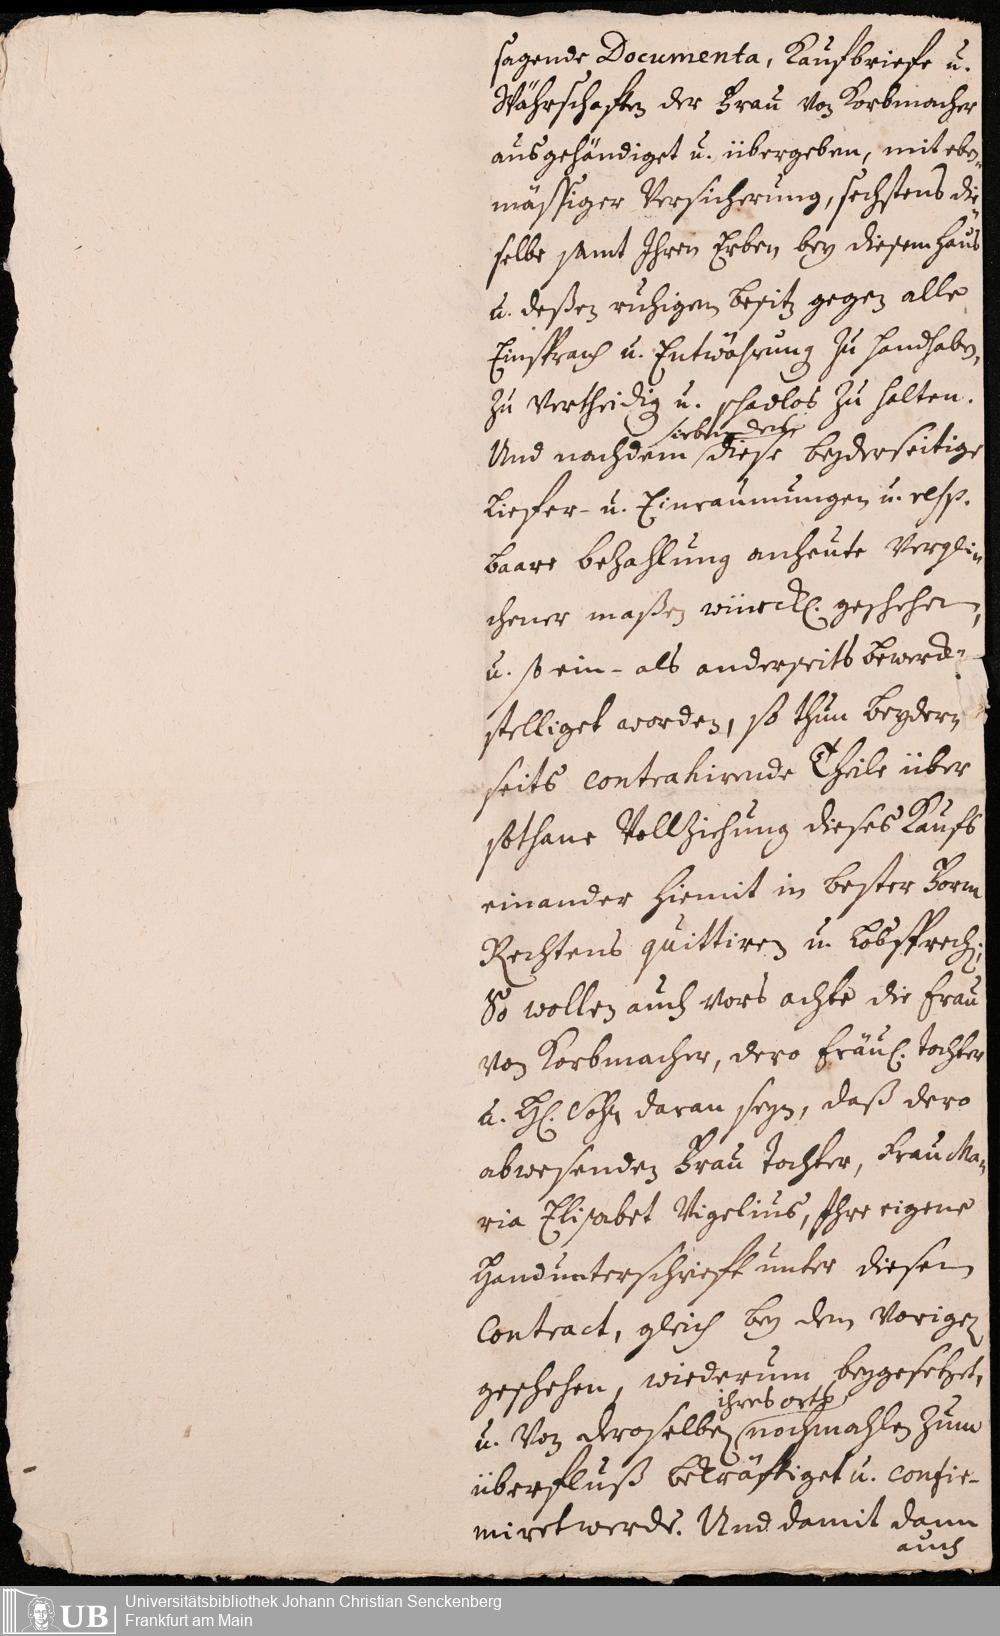 sagende Documenta, Kaufbriefe u.
Währschafften der Frau von Korbmacher
ausgehändiget u. übergeben, mit eben-
mässiger Versicherung, sechstens die-
selbe samt Ihren Erben bey diesem Hauß
u. deßen ruhigem besitz gegen alle
Einsprach u. Entwährung zu handhaben,
zu vertheidig u. schadlos zu halten.
siebendens
Und nachdem diese beyderseitige
Liefer- u. Einraumungen u. resp.
baare bezahlung anheute vergli-
chener maßen würckl. geschehen,
u. so ein- als anderseits bewerck-
stelliget worden, so thun beyder-
seits contrahirende Theile über
sothane Vollziehung dieses Kaufs
einander hiemit in bester Form
Rechtens quittiren u. loßsprech;
So wollen auch vors achte die Frau
von Korbmacher, dero Fräul. Tochter
u. H. Sohn daran seyn, daß dero
abwesenden Frau Tochter, Frau Ma-
ria Elisabet Vigelius, Ihre eigene
Handunterschrifft unter diesem
Contract, gleich bey dem vorigen
geschehen, wiederum beygesetzet,
ihres orths
u. von deroselben nochmahlen zum
überfluß bekräfftiget u. confir-
miret werde. Und damit dann
auch
UB
Universitätsbibliothek Johann Christian Senckenberg
Frankfurt am Main